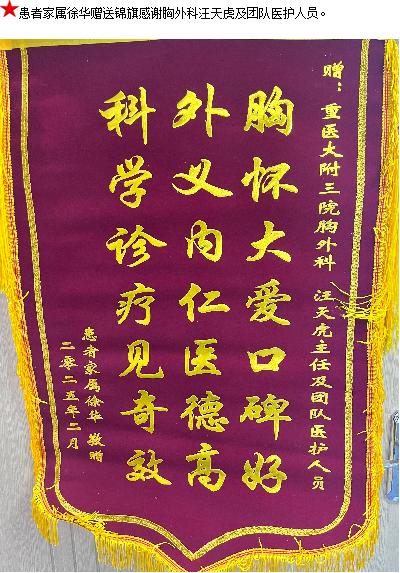 患者家属徐华赠送锦旗感谢胸外科汪天虎及团队医护人员。
赠：重医大附三院胸外科 汪天虎主任及团队医护人员
胸怀大爱口碑好
外义内仁医德高
科学诊疗见奇效
患者家属徐华 敬赠
二零二五年二月